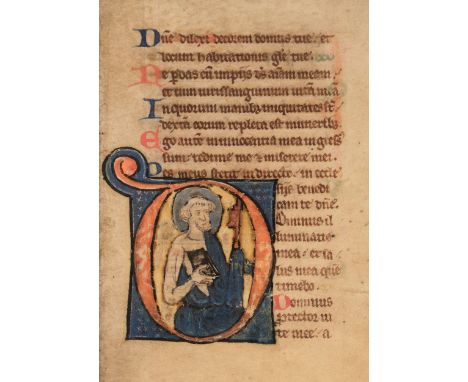 Dñe dilexi decorem domus tue · et
locum habitationis gl̃e tue ·
Ne perdas cũ impijs d̃s aĩam meam
et cum uiris sanguinum uitã meã
In quorum manibus iniquitates sũt
dextera eorum repleta est muneribus
Ego autẽ in innocentia mea ingres
sum redime me & miserere mei ·
Pes meus stetit in directo · in eccle
sijs benedi
cam te dñe ·
Dominus il
luminatio
mea · et sa
lus mea quẽ
timebo ·
Dominus
protector ui
te mee · a